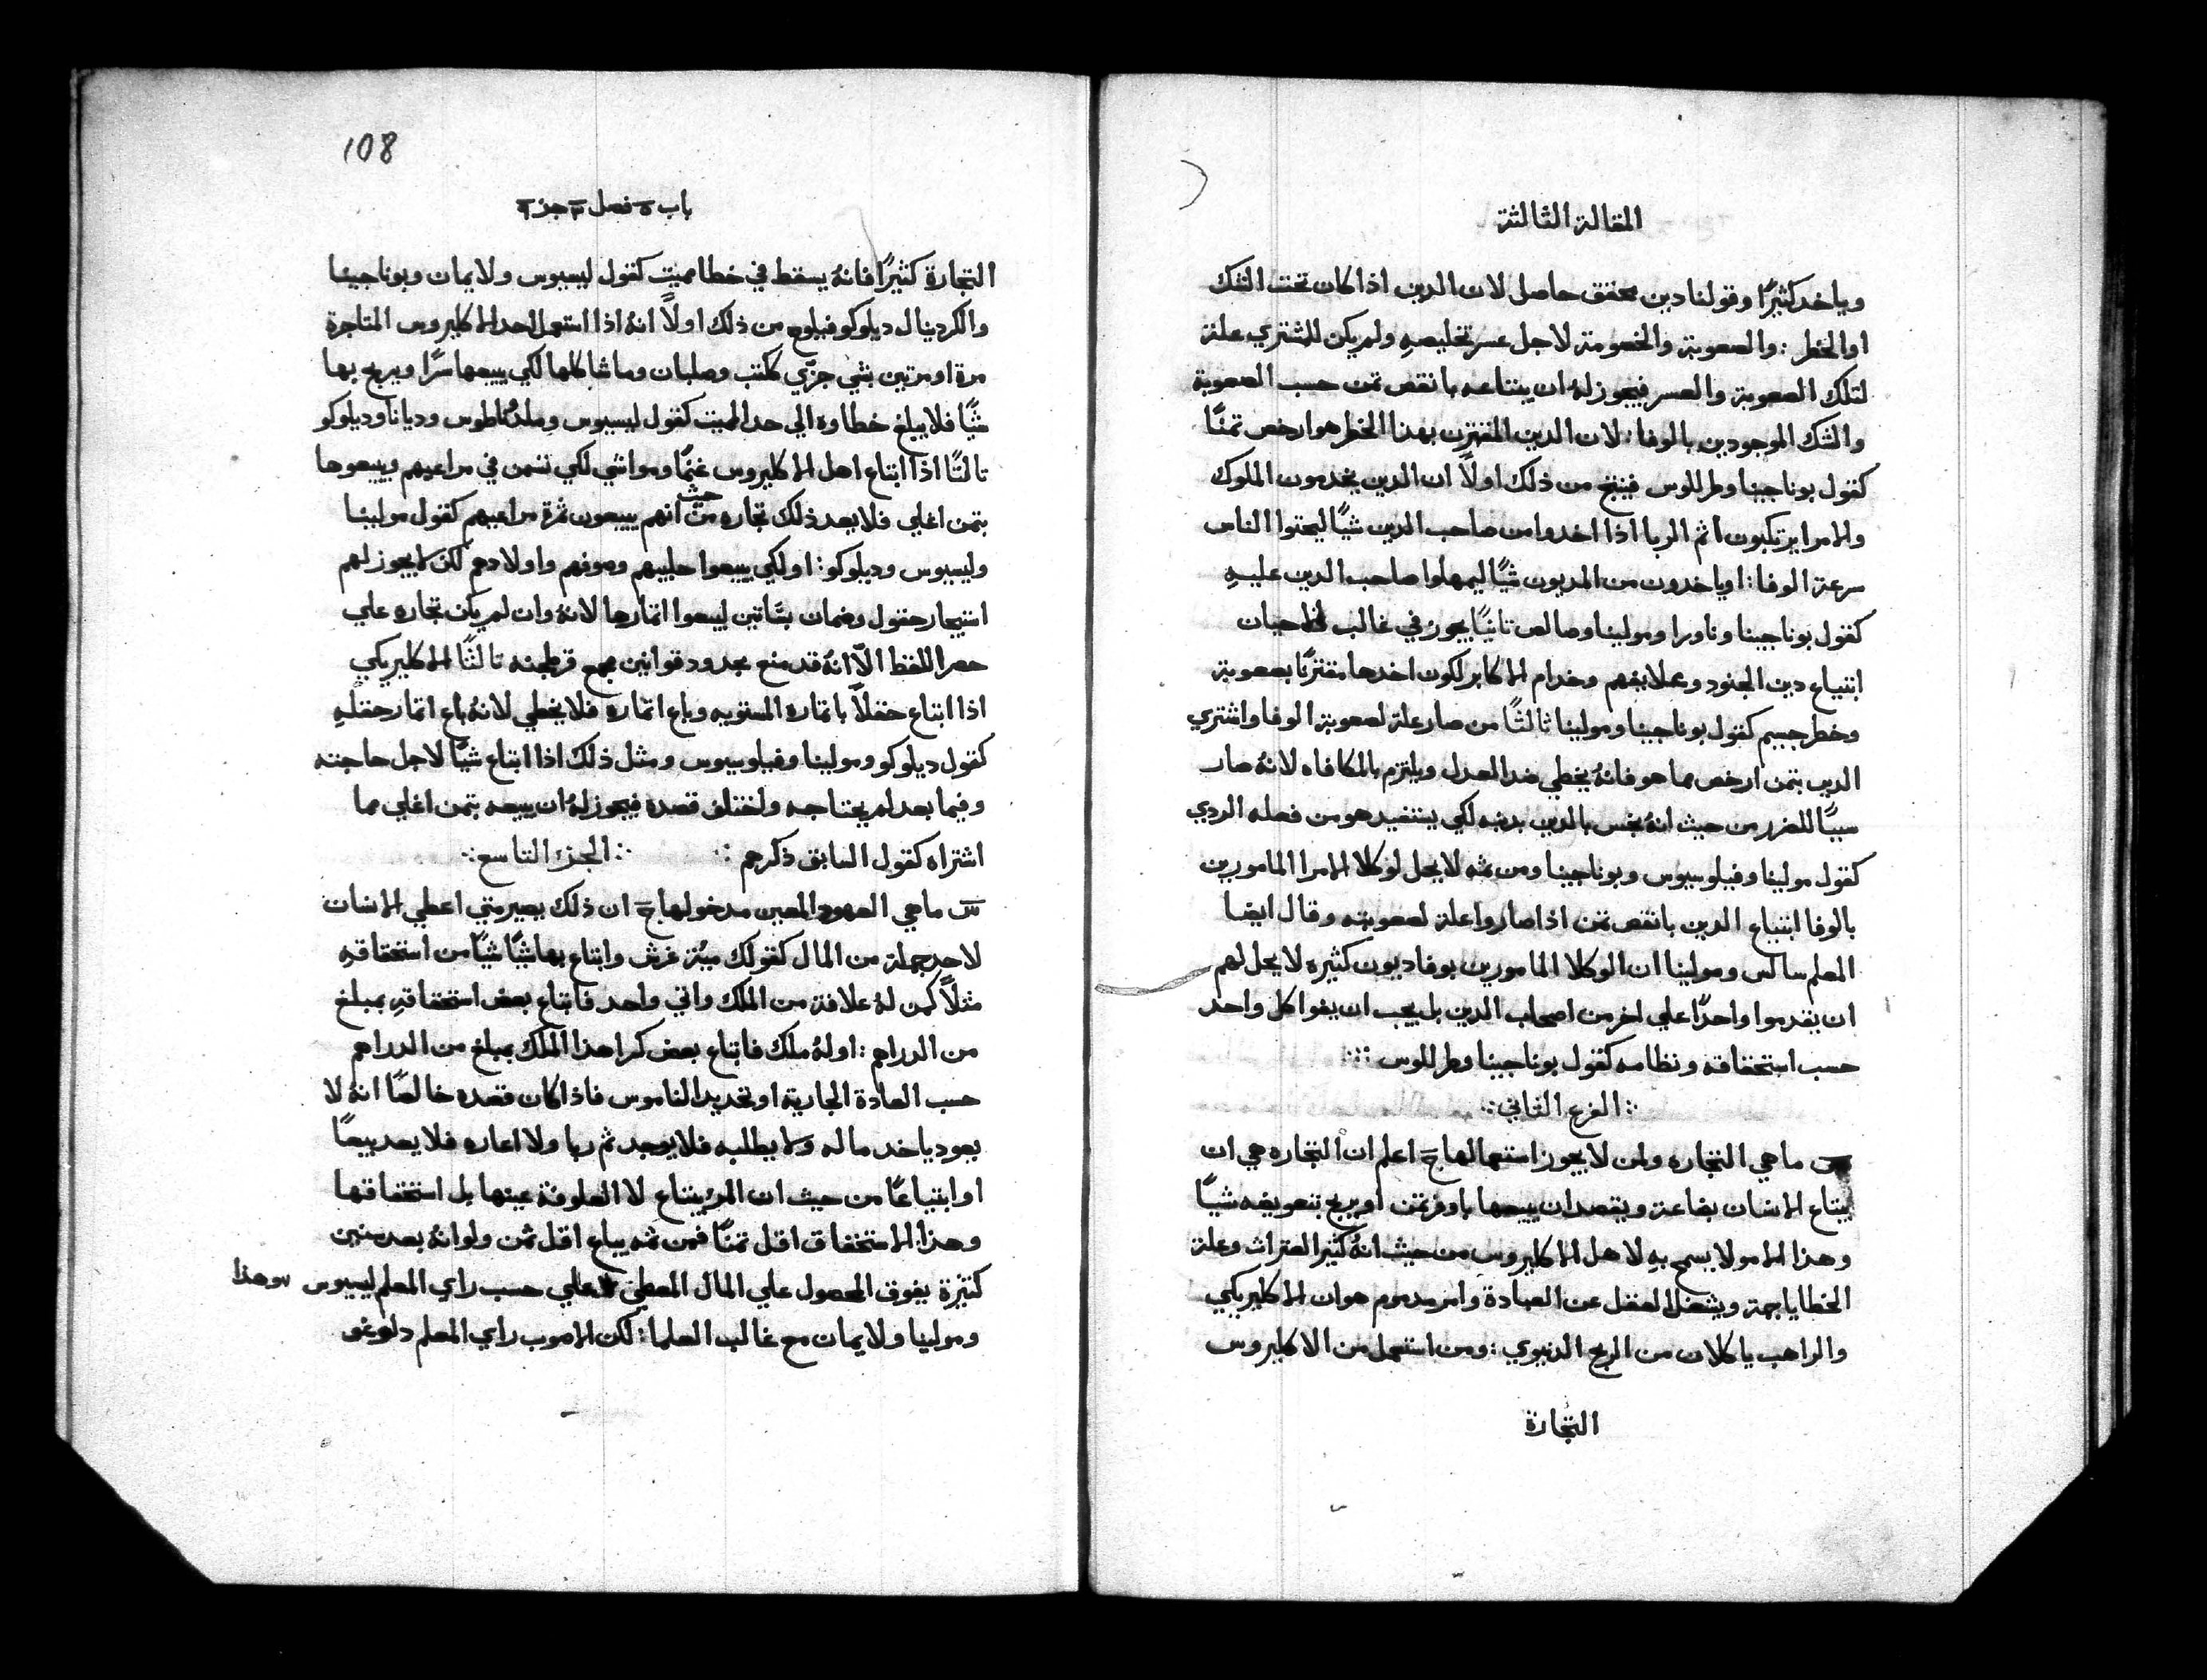 المقالة الثالثة
وياخد كثيرًا وقولنا دين محقق حاصل لان الدين اذا كان تحت الشك
او الخطر : والصعوبة والخصومة لاجل عسر تخليصهِ ولم يكن للمشتري علة
لتلك الصعوبة والعسر فيجوز لهُ ان يبتاعه بانقص تمن حسب الصعوبة
والشك الموجودين بالوفا : لان الدين المقترن بهذا الخطر هو ارخص تمنًا
كقول بوناجينا وطرللوس فينتج من ذلك اولاً ان الدين يخدمون الملوك
والامرا يرتكبون اثم الربا اذا اخدوا من صاحب الدين شيًا ليحتوا الناس
سرعة الوفا : او ياخدون من المديون شيًا ليمهلوا صاحب الدين عليهِ
كقول بوناجينا وناورا ومولينا وصالص تانيًا يجوز في غالب الاحيان
ابتياع دين الجنود وعلايفهم وخدام الاكابر لكون اخدها مقترنًا بصعوبة
وخطر جسيم كقول بوناجينا ومولينا ثالثًا من صار علة لصعوبة الوفا واشتري
الدين بتمن ارخص مما هو فانهُ يخطي ضد العدل ويلتزم بالمكافاه لانهُ صار
سببًا للضرر من حيث انهُ بخس بالدين بدنبه لكي يستفيد هو من فعله الردي
كقول مولينا وفيلوسيوس وبوناجينا ومن ثمه لا يحل لوكلا الامرا المامورين
بالوفا ابتياع الدين بانقص تمن اذا صاروا علة لصعوبته وقال ايضا
المعلم سالس ومولينا ان الوكلا المامورين بوفا ديون كثيره لا يحل لهم
ان يقدموا واحدًا علي اخر من اصحاب الدين بل يجب ان يفوا كل واحد
حسب استحقاقه ونظامه كقول بوناجينا وطرللوس
الفرع الثاني
س ما هي التجاره ولمن لا يجوز استعمالها ج اعلم ان التجاره هي ان
يبتاع الانسان بضاعة ويقصد ان يبيعها باوفر تمن او يربح بتعويضه شيًا
وهذا الامر لا يسمح بهِ لاهل الاكليروس من حيث انهُ كثير العثرات وعلة
الخطايا جمة ويشغل العقل عن العبادة وامر مدموم هو ان الاكليريكي
والراهب ياكلان من الربح الدنيوي : ومن استعمل من الاكليروس
التجارة
108
باب ٥ فصل ٣ جزء ٩
التجارة كثيرًا فانهُ يسقط في خطا مميت كقول ليسيوس ولايمان وبوناجينا
والكردينال ديلوكو فيلوح من ذلك اولاً انهُ اذا استعمل احد الاكليروس المتاجرة
مرة او مرتين بشي جزّي ككتب وصلبان وما شاكلها لكي يبيعها سرًا ويربح بها
شيًا فلا يبلغ خطاوه الي حد المميت كقول ليسيوس وديانا وديلوكو
تالتًا اذا ابتاع اهل الاكليروس غنمًا ومواشي لكي تسمن في مراعيهم ويبيعوها
بتمن اغلي فلا يعد ذلك تجاره من حيث انهم يبيعون ثمرة مراعيهم كقول مولينا
وليسيوس وديلوكو : او لكي يبيعوا حليبهم وصوفهم واولادهم لكن لا يجوز لهم
استيجار حقول وضمان بساتين ليبيعوا اتمارها لانهُ وان لم يكن تجاره علي
حصر اللفظ الاّ انهُ قد منع بحدود قوانين مجمع قرطجنه تالثًا الاكليريكي
اذا ابتاع حقلاً باتماره المستويه وباع اتماره فلا يخطي لانهُ باع اتمار حقلهِ
كقول ديلوكو ومولينا وفيلوسيوس ومثل ذلك اذا ابتاع شيًا لاجل حاجته
وفيما بعد لم يحتاجه واختلف قصده فيجوز لهُ ان يبيعه بتمن اغلي مما
اشتراه كقول السابق ذكرهم الجزء التاسع
س ما هي العهود المعين مدخولها ج ان ذلك يصير متي اعطي الانسان
لاحد جملة من المال كقولك ميّة غرش وابتاع بها شيًا شيًا من استحقاقهِ
مثلاً كمن لهُ علافة من الملك واتي واحد فابتاع بعض استحقاقهِ بمبلغ
من الدراهم : او لهُ ملك فابتاع بعض كرا هذا الملك بمبلغ من الدراهم
حسب العادة الجارية او تحديد الناموس فاذا كان قصده خالصًا انهُ لا
يعود ياخد ماله ولا يطلبه فلا يوجد ثم ربا ولا اعاره فلا يعد بيعًا
او ابتياعًا من حيث ان المرء يبتاع لا العلوفة عينها بل استحقاقها
وهذا الاستحقاق اقل تمنًا فمن ثمه يباع اقل تمن ولو انهُ بعد سنين
كثيرة يفوق المحصول علي المال المعطي علي حسب راي المعلم ليسيوس وهذا
ومولينا ولايمان مع غالب العلما : لكن الاصوب راي المعلم دلوغو